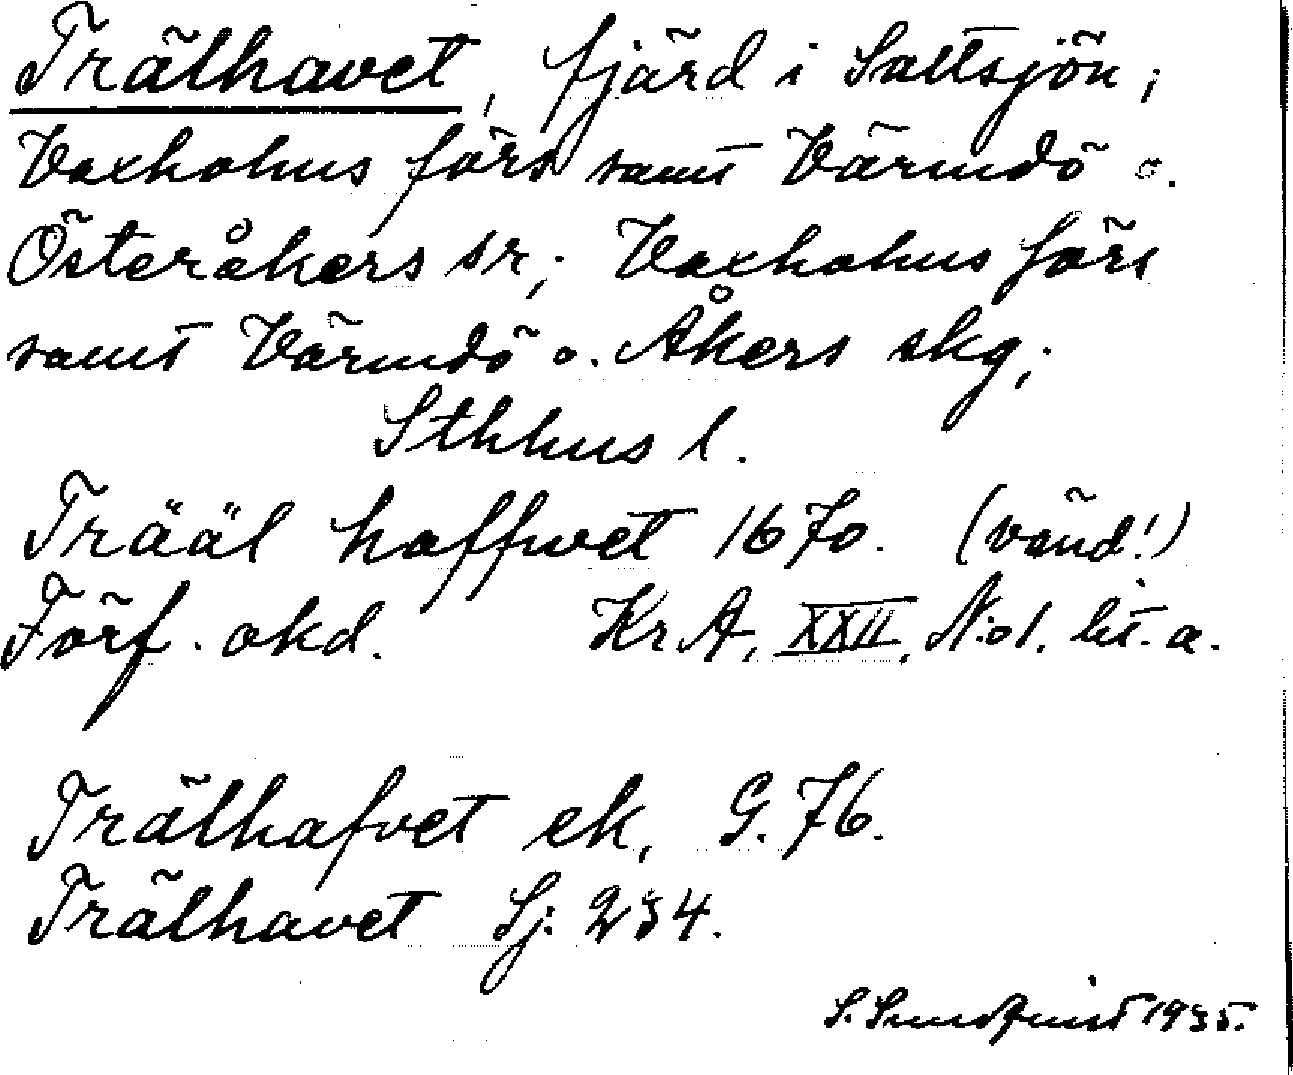 Trälhavet, fjärd i Saltsjön;
Vaxholms förs samt Värmdö o.
Österåkers sr; Vaxholms förs
samt Värmdö o. Åkers skg;
Sthlms l.
Trääl haffwet 1670. (vänd!)
Förf. okd. KrA, XXII, N:o 1. lit. a.
Trälhafvet ek, G. 76.
Trälhavet Sj: 234.
S. Sundqvist 1935.